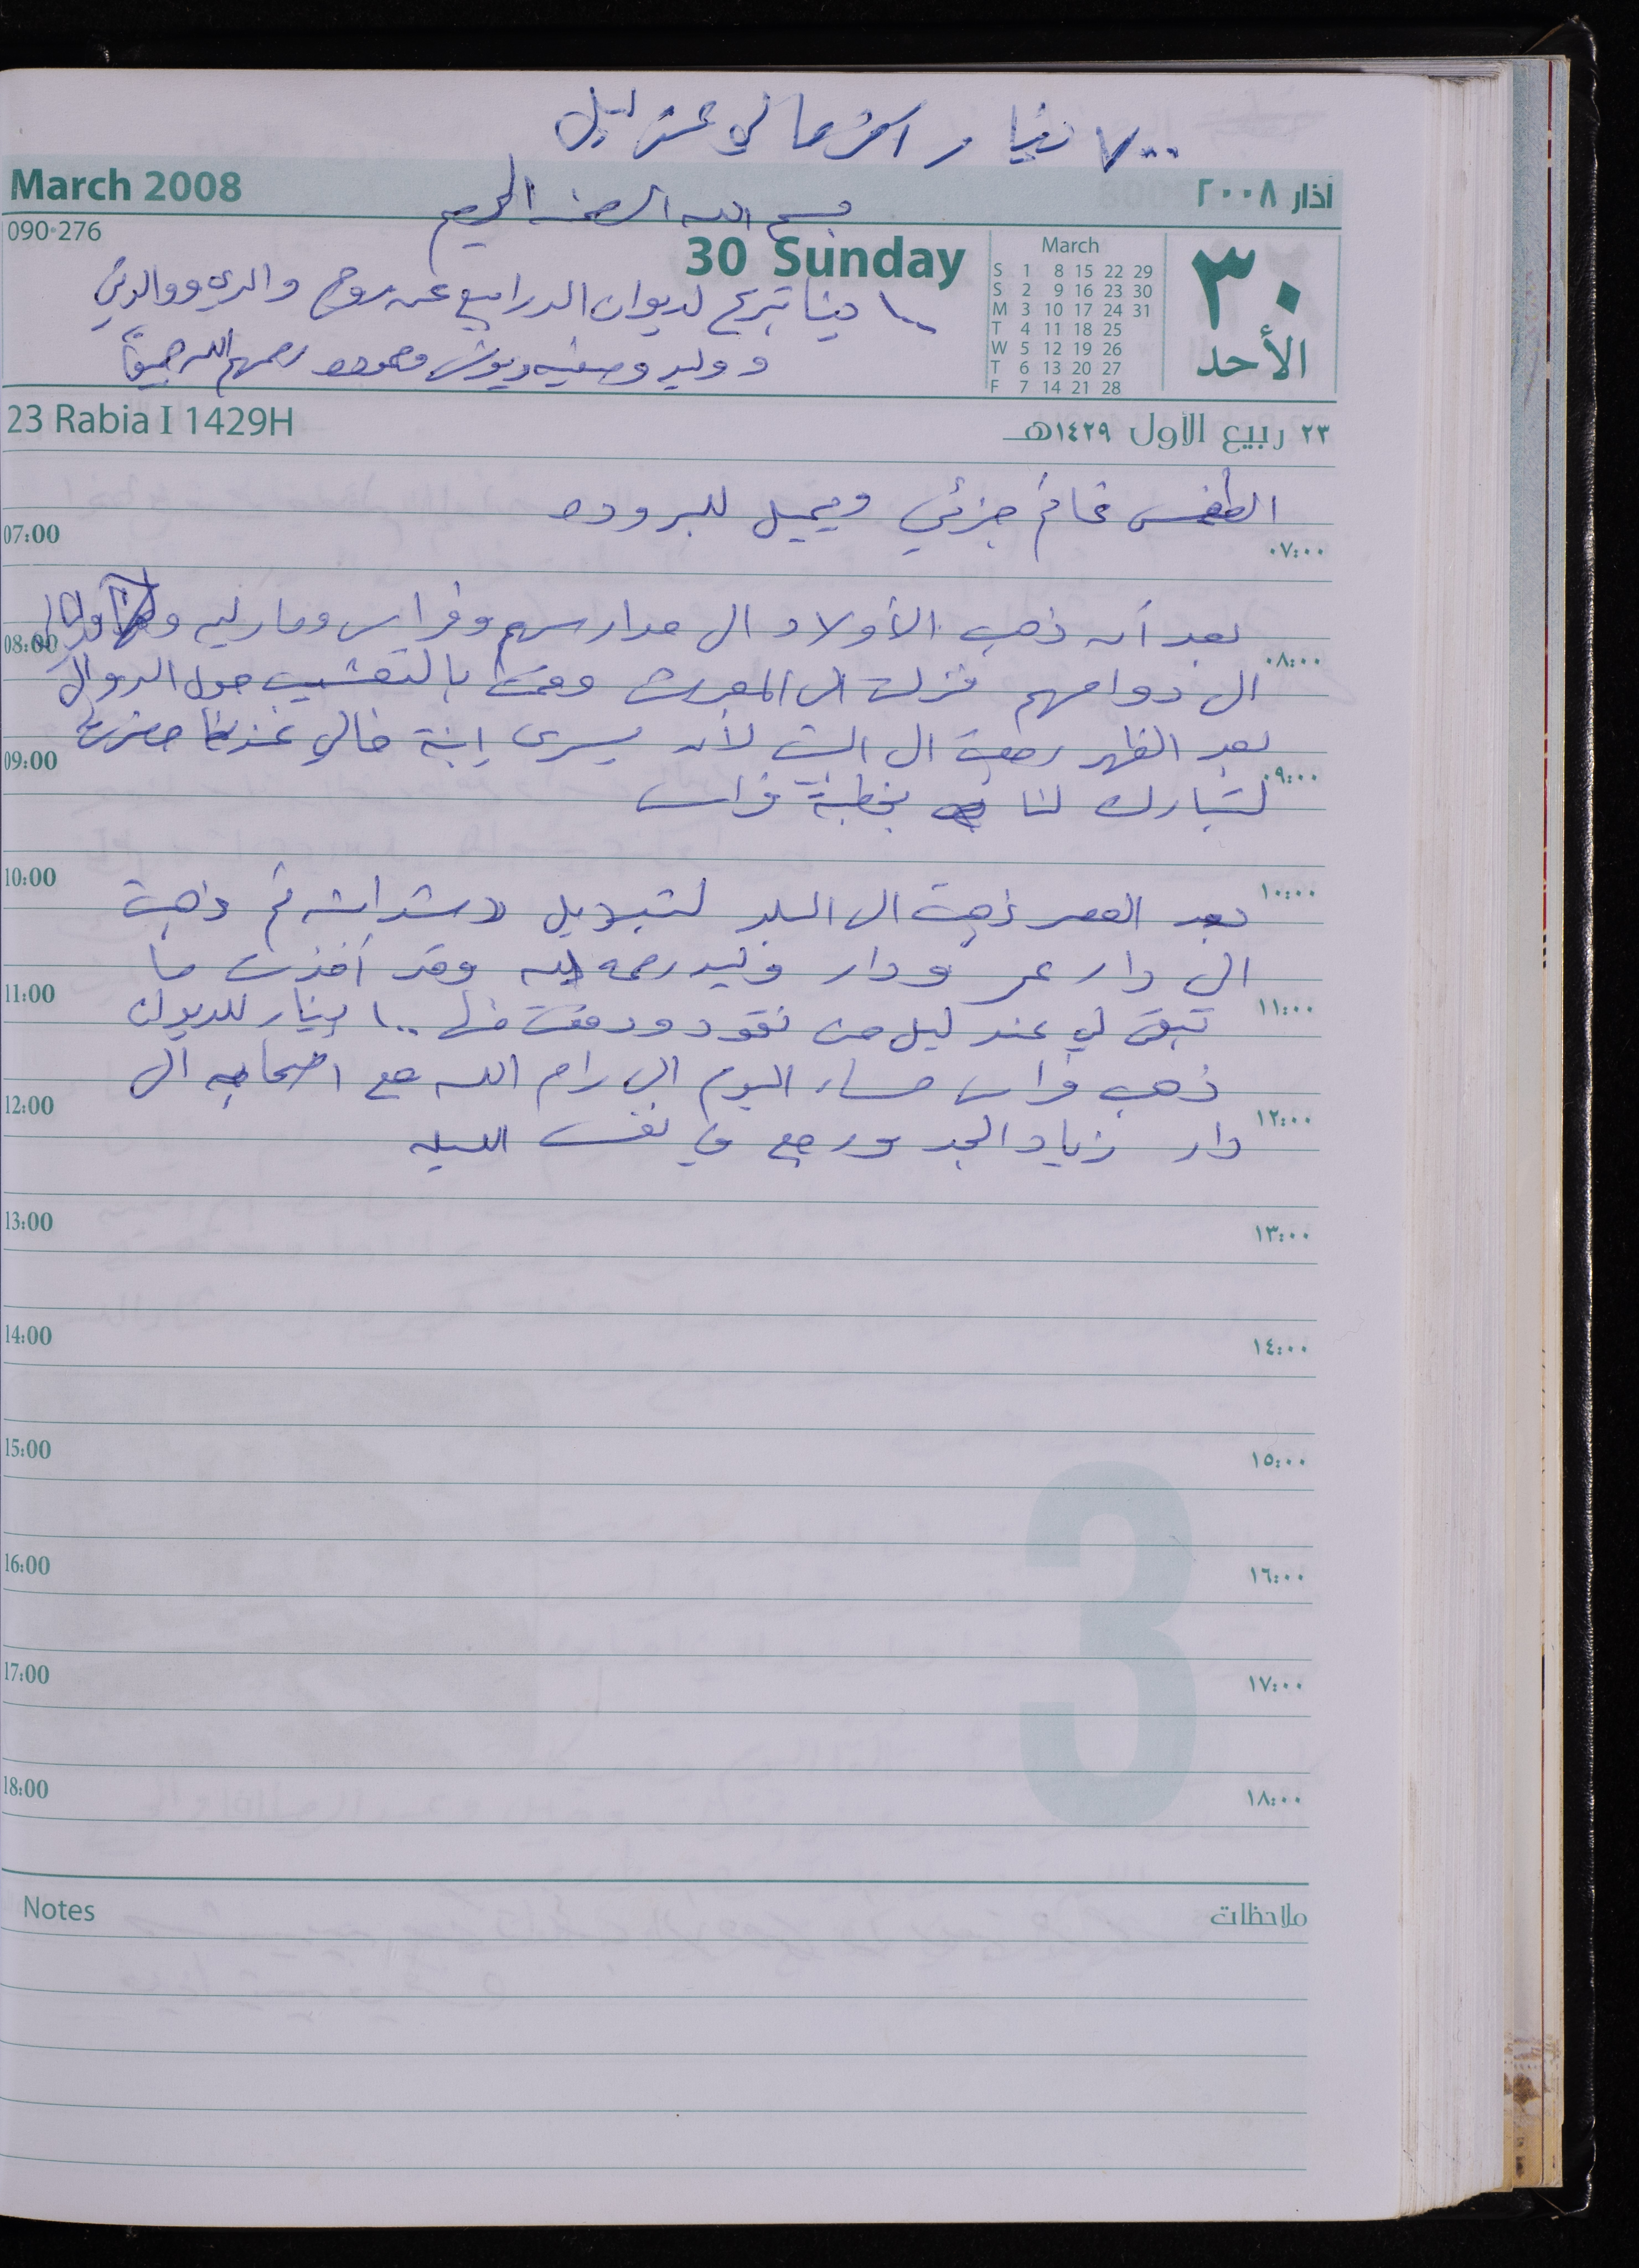 ٧٠٠ دينار آخر ما لي عند ليل
March 2008
آذار ٢٠٠٨
بسم الله الرحمن الرحيم
090-276
30 Sunday
March
S 1 8 15 22 29
S 2 9 16 23 30
M 3 10 17 24 31
T 4 11 18 25
W 5 12 19 26
T 6 13 20 27
F 7 14 21 28
٣٠
الأحد
١٠٠ دينا تبرع لديوان الدرابيع عن روح والدي ووالدتي
ووليد وصفيه ومحمود رحمهم الله جميعاً
23 Rabia I 1429H
٢٣ ربيع الأول ١٤٢٩هـ
الطقس غائم جزئي ويميل للبروده
07:00
٠٧:٠٠
بعد أن ذهب الأولاد الى مدارسهم وفراس وماريه
08:00
٠٨:٠٠
الى دوامهم نزلت الى المعرش وقمت بالتعشيب حول الدوالي
بعد الظهر رجعت الى البيت لأن يسرى ابنة خالي عندنا حضرت
09:00
٠٩:٠٠
لتبارك لنا بخطبة فراس
10:00
١٠:٠٠
بعد العصر ذهبت الى البلد لتبديل ثم ذهبت
الى دار عمر ودار وليد رحمه الله وقد أخذت ما
11:00
١١:٠٠
تبقى لي عند ليل من نقود ودفعت منها ١٠٠ دينار للديوان
ذهب فراس مساء اليوم الى رام الله مع اصحابه الى
12:00
١٢:٠٠
دار زياد الجد ورجع في نفس الليله
13:00
١٣:٠٠
14:00
١٤:٠٠
15:00
١٥:٠٠
3
16:00
١٦:٠٠
17:00
١٧:٠٠
18:00
١٨:٠٠
Notes
ملاحظات